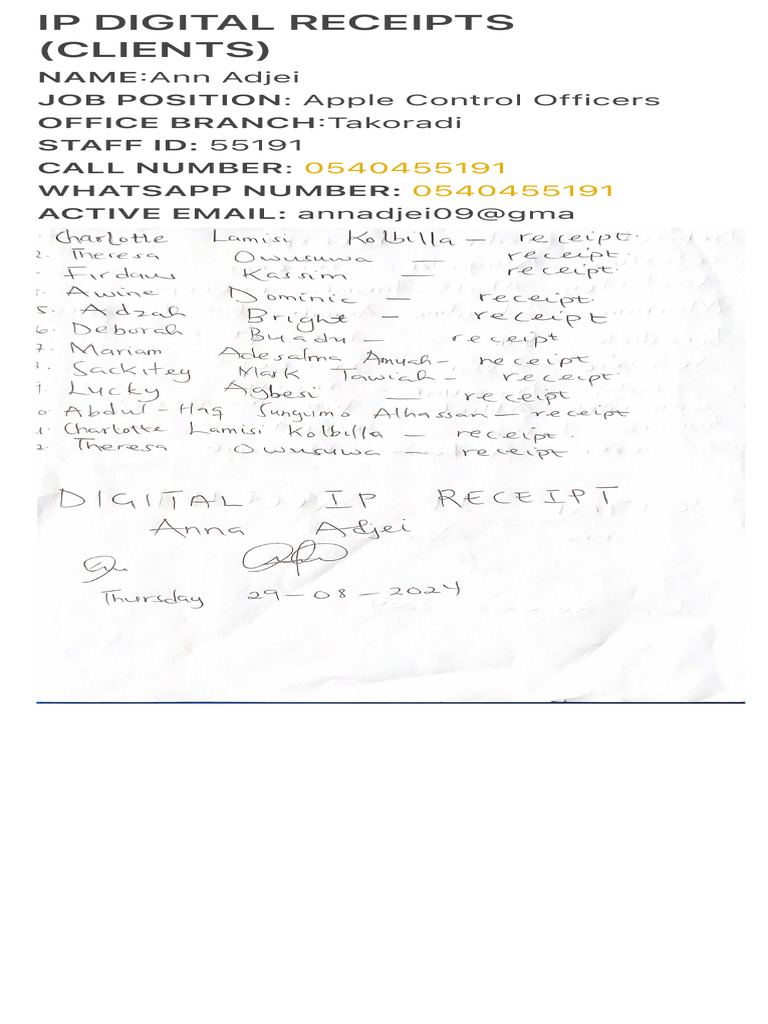 IP DIGITAL RECEIPTS
(CLIENTS)
NAME:Ann Adjei
JOB POSITION: Apple Control Officers
OFFICE BRANCH:Takoradi
STAFF ID: 55191
CALL NUMBER: 0540455191
WHATSAPP NUMBER: 0540455191
ACTIVE EMAIL: annadjei09@gma
Charlotte Lamisi Kolbilla — receipt.
2. Theresa Owusuwa — receipt.
Firdaus Kassim — receipt.
Awine Dominic — receipt.
5. Adzah Bright — receipt
6. Deborah Buadu — receipt
7. Mariam Adesalma Amuah - receipt
Sackitey Mark Tawiah - receipt.
9. Lucky Agbesi — receipt
0 Abdul-Haq Sungumo Alhassan — receipt
Charlotte Lamisi Kolbilla — receipt.
2. Theresa Owusuwa — receipt
DIGITAL IP RECEIPT
Anna Adjei
Thursday 29-08-2024